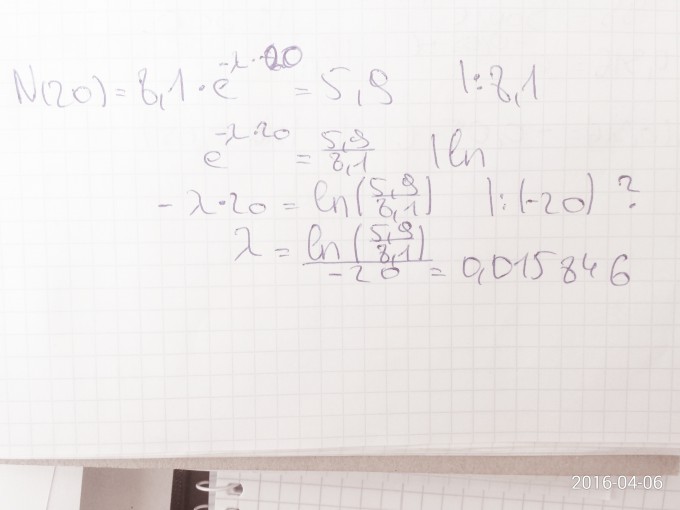 N(20) = 8,1 · e^-λ·20 = 5,9 |:8,1
e^-λ·20 = 5,9/8,1 | ln
- λ·20 = ln(5,9/8,1) |:(-20) ?
λ = ln(5,9/8,1)/-20 = 0,015846
2016-04-06